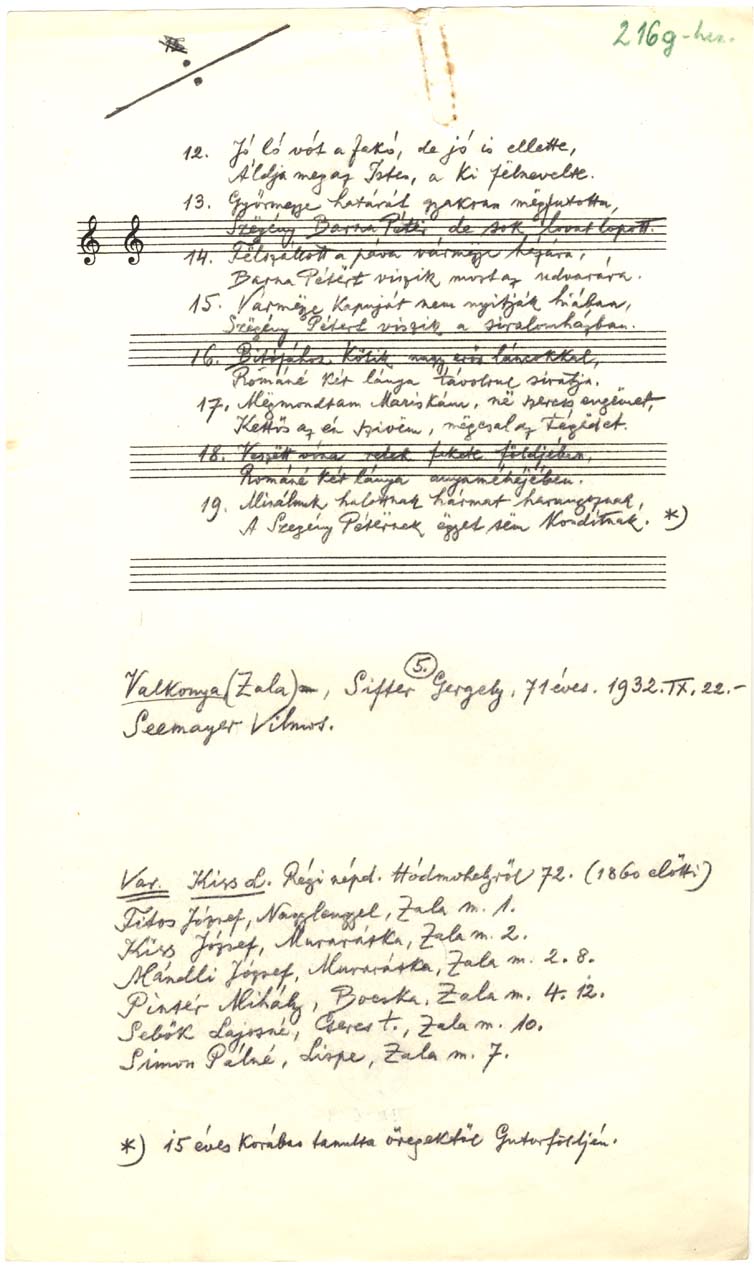 216g-hez.
12. Jó ló vót a fakó, de jó is ellette,
Áldja meg az Isten, a ki fëlnevelte.
13. Györmegye határát gyakran mëgfutotta,
Szëgény Barna Pétër de sok lovat lopott.
14. Fëlszállott a páva vármëgye házára,
Barna Pétërt viszik most az udvarára.
15. Vármëgye kapuját nem nyitják hiában,
Szëgény Pétërt viszik a siralomházban.
16. Bitófához kötik nagy erős láncokkal,
Románé két lánya távolrul siratja.
17. Mëgmondtam Mariskám, në szeress engëmet,
Kettős az én szivem, mëgcsal az tégëdet.
18. Veszëtt vóna retek fekete földjében,
Románé két lánya anyaméhéjében.
19. Mindnuk halottnak hármat harangoznak,
A Szegény Pétërnek ëggyet sëm kondítnak. *)
5.
Valkonya (Zala), Sifter Gergely, 71 éves. 1932.IX.22.-
Seemayer Vilmos.
Var. Kiss L. Régi népd. Hódmvhelyről 72. (1860 előtti)
Titos József, Nagylengyel, Zala m. 1.
Kiss József, Muraráska, Zala m. 2.
Mándli József, Muraráska, Zala m. 2. 8.
Pintér Mihály, Bocska, Zala m. 4. 12.
Sebők Lajosné, Cseres t., Zala m. 10.
Simon Pálné, Lispe, Zala m. 7.
*) 15 éves korában tanulta öregektől Gutorföldjén.